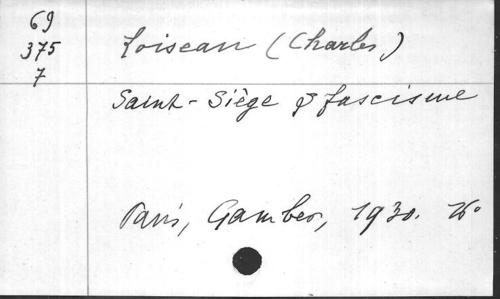 69
375
7
Loiseau (Charles)
Saint-Siège & fascisme
Paris, Gamber, 1930. 16°